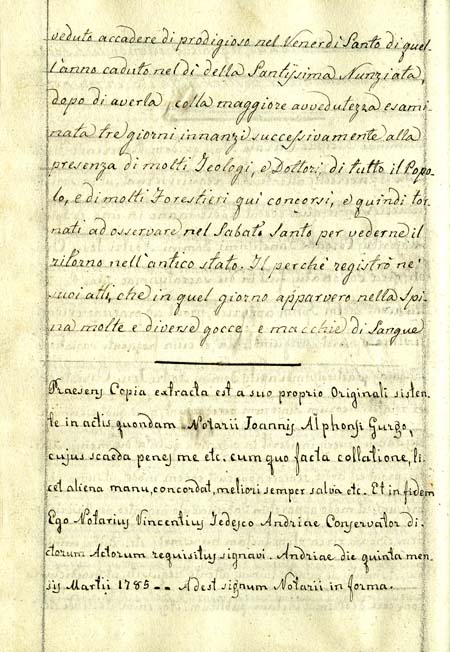 veduto accadere di prodigioso nel Venerdi Santo di quel
l'anno caduto nel dì della Santissima Nunziata,
dopo di averla, colla maggiore avvedutezza esami
nata tre giorni innanzi successivamente alla
presenza di molti Teologi, e Dottori, di tutto il Popo-
lo, e di molti Forestieri qui concorsi, e quindi tor
nati ad osservare nel Sabato Santo per vederne il
ritorno nell'antico stato. Il perchè registrò ne'
suoi atti, che in quel giorno apparvero nella Spi
na molte e diverse gocce, e macchie di Sangue
Praesens Copia extracta est a suo proprio Originali sisten
te in actis quondam Notarii Ioannis Alphonsi Gurgo,
cujus scaeda penes me etc. cum quo facta collatione, li
cet aliena manu, concordat, meliori semper salva etc. Et in fidem
Ego Notarius Vincentius Tedesco Andriae Conservator di
ctorum Actorum requisitus signavi. Andriae die quinta men
sis Martii 1785 -- Adest signum Notarii in forma.